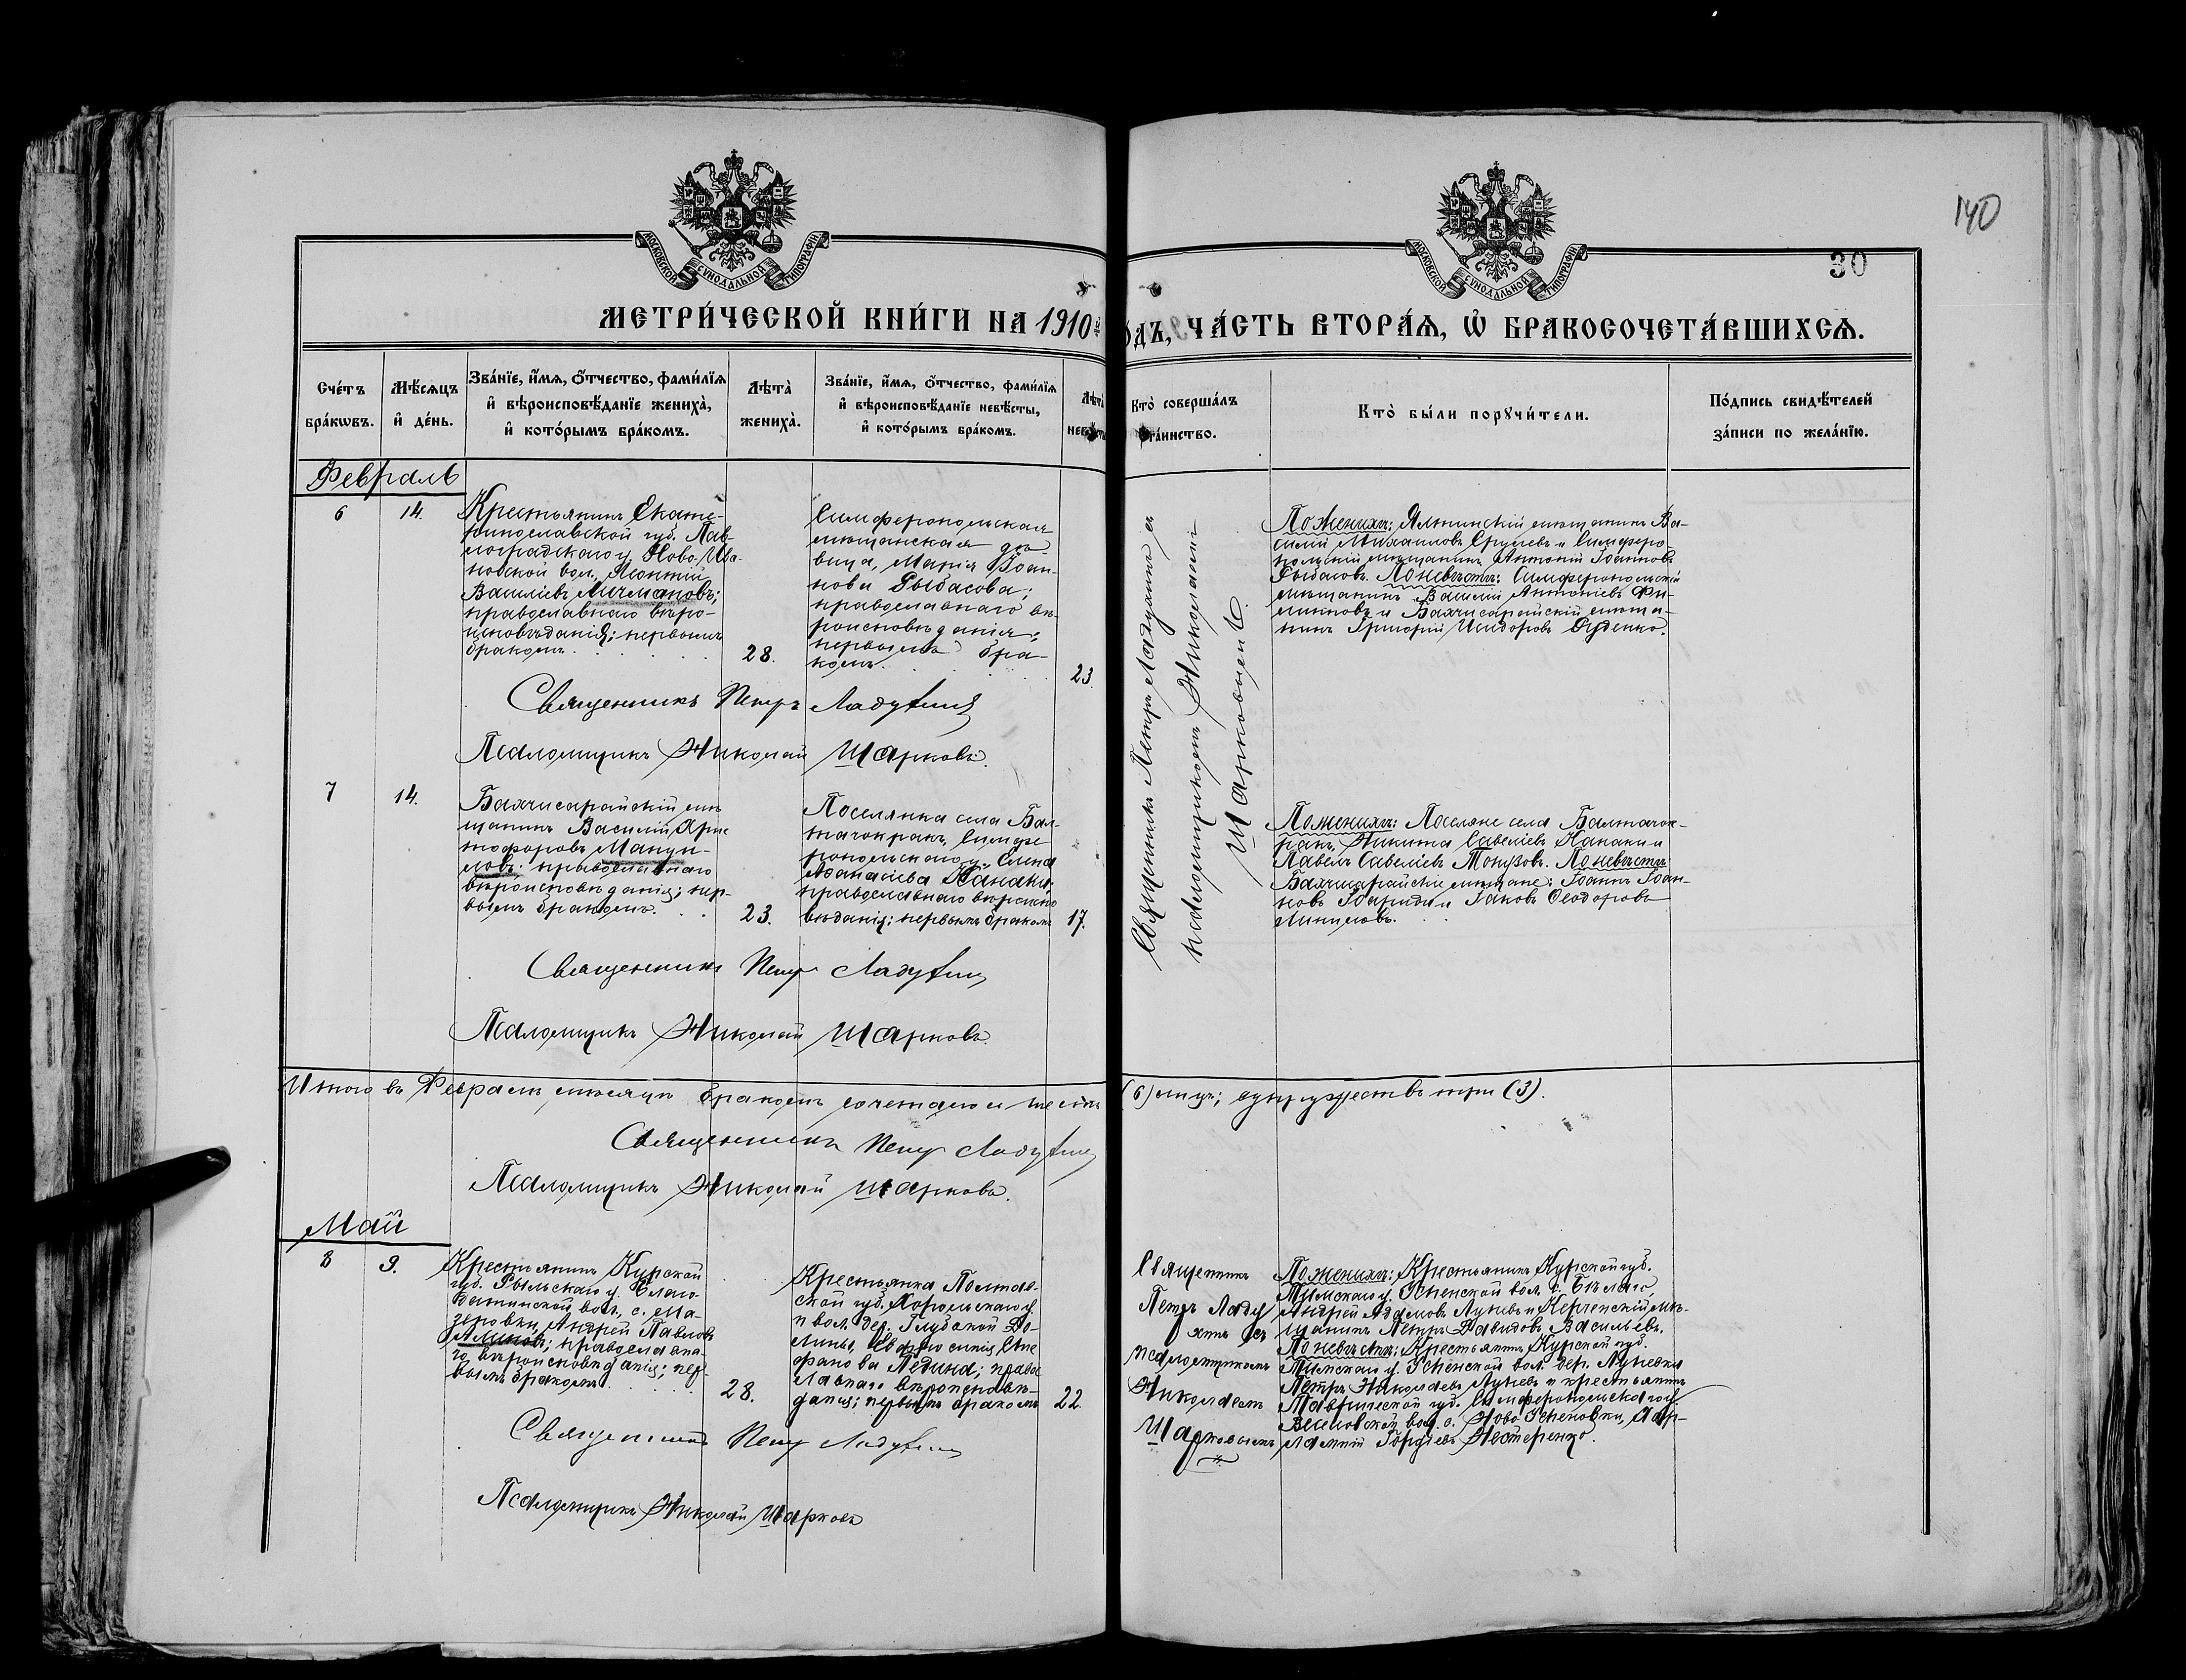 140
30
МОСКОВСКОЙ СѴНОДАЛЬНОЙ ТИПОГРАФІИ
МОСКОВСКОЙ СѴНОДАЛЬНОЙ ТИПОГРАФІИ
МЕТРИ́ЧЕСКОЙ КНИ́ГИ НА 1910й
ГО́ДЪ, ЧА́СТЬ ВТОРА́Я, Ѡ҆ БРАКОСОЧЕТА́ВШИХСѦ.
Сче́тъ бра́кѡвъ.
Мѣ́сѧцъ и҆ де́нь.
Зва́нїе, и҆́мѧ, ѻ҆́тчество, фами́лїѧ
и҆ вѣроисповѣ́данїе жениха̀,
и҆ кото́рымъ бра́комъ.
Лѣта̀ жениха̀.
Зва́нїе, и҆́мѧ, ѻ҆́тчество, фами́лїѧ
и҆ вѣроисповѣ́данїе невѣ́сты,
и҆ кото́рымъ бра́комъ.
Лѣта̀ невѣ́сты
Кто̀ соверша́лъ
та́инство.
Кто̀ бы́ли порꙋчи́тели.
По́дпись свидѣ́телей
за́писи по жела́нїю.
Февраль
6
14.
Крестьянинъ Екате-
ринославской губ. Пав-
лоградскаго у. Ново-Ива-
новской вол., Леонтій
Василіевъ Личмановъ;
православнаго вѣро-
исповѣданія; первымъ
бракомъ.
28.
Симферопольская
мѣщанская дѣ-
вица, Марія Іоан-
нова Рыбасова;
православнаго вѣ-
роисповѣданія;
первымъ бра-
комъ.
23.
Священникъ Петръ Ладухинъ съ
псаломщикомъ Николаемъ
Шарковымъ.
По женихѣ: Ялтинскій мѣщанинъ Ва-
силій Михаиловъ и Симферо-
польскій мѣщанинъ Антоній Іоанновъ
Рыбасовъ. По невѣстѣ: Симферопольскій
мѣщанинъ Василій Антоніевъ Фи-
липповъ и Бахчисарайскій мѣща-
нинъ Григорій Исидоровъ Руденко.
Священникъ Петръ Ладухинъ
Псаломщикъ Николай Шарковъ.
7
14.
Бахчисарайскій мѣ-
щанинъ Василій Хрис
тофоровъ Мануи-
ловъ; православнаго
вѣроисповѣданія; пер-
вымъ бракомъ.
23.
Поселянка села Бал-
тачокракъ, Симфе
ропольскаго у., Елена
Афанасіева Канаки;
православнаго вѣроиспо
вѣданія; первымъ бракомъ
17.
По женихѣ: Поселяне села Балтачок-
ракъ, Никита Савеліевъ Канаки и
Павелъ Савеліевъ Тонузовъ. По невѣстѣ:
Бахчисарайскіе мѣщане: Іоаннъ Іоан-
новъ и Іаковъ Ѳеодоровъ
Священникъ Петръ Ладухинъ
Псаломщикъ Николай Шарковъ.
Итого въ Февралѣ мѣсяцѣ бракомъ сочеталось шесть
(6) лицъ; супружествъ три (3).
Священникъ Петръ Ладухинъ
Псаломщикъ Николай Шарковъ.
Май
8
9.
Крестьянинъ Курской
губ. Рыльскаго у. Благо-
датинской вол., с. Ма-
зеровки, Андрей Павловъ
Алимовъ; православна-
го вѣроисповѣданія; пер-
вымъ бракомъ.
28.
Крестьянка Полтав-
ской губ. Хорольскаго у.
и вол. дер. Глубокой До-
лины, Евфросинія Сте
фанова Педина; право
славнаго вѣроисповѣ-
данія; первымъ бракомъ
22.
Священникъ
Петръ Ладу
хинъ съ
псаломщикомъ
Николаемъ
Шарковымъ
По женихѣ: Крестьянинъ Курской губ.
Тимскаго у. Успенской вол. с.
Андрей Адамовъ Луневъ и Керченскій мѣ-
щанинъ Петръ Давидовъ Васильевъ.
По невѣстѣ: Крестьянинъ Курской губ.
Тимскаго у. Успенской вол. дер. Луневки
Петръ Николаевъ Луневъ и крестьянинъ
Таврической губ. Симферопольскаго у.
вол. с. Ново Успеновки, Хар-
лампій Гордіевъ Нестеренко.
Священникъ Петръ Ладухинъ
Псаломщикъ Николай Шарковъ